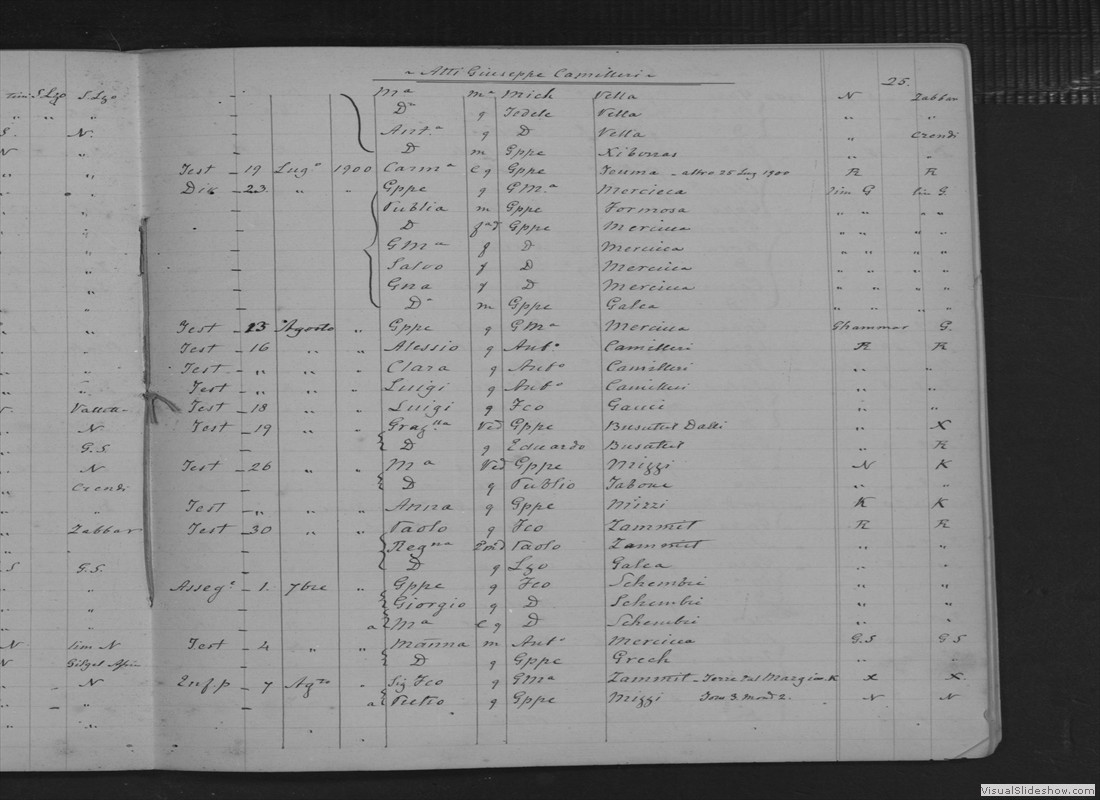 Atti Giuseppe Camilleri
25.
Ma ma Mich Vella N Zabbar
D q Fedele Vella " "
Anta q D Vella " Crendi
D m Gppe Xiberras " "
Test 19 Lugo 1900 Carma C q Gppe Teuma - altro 25 Lug 1900 K K
Dic 23 " " Gppe q GMa Mercieca lim G lim G.
Publia m Gppe Formosa " " " "
D Gppe Mercieca " " " "
GMa q D Mercieca " " " "
Salvo q D Mercieca " " " "
Gna q D Mercieca " " " "
D m Gppe Galea " " " "
Test 23 Agosto " Gppe q GMa Mercieca Ghammar G.
Test 16 " " Alessio q Anto Camilleri K K
Test " " " Clara q Anto Camilleri " "
Test " " " Luigi q Anto Camilleri " "
Test 18 " " Luigi q Fco Gauci " "
Test 19 " " Ved Gppe Busuttil Dalli " X
D q Eduardo Busuttil " K
Test 26 " " Ma Ved Gppe Mizzi N K
D q Publio Tabone " "
Test " " " Anna q Gppe Mizzi K K
Test 30 " " Paolo q Fco Zammit K K
Regna Paolo Zammit " "
D q Lgo Galea " "
Assege 1. 7bre " Gppe q Fco Schembri " "
Giorgio q D Schembri " "
a Ma C q D Schembri " "
Test 4 " " Marina m Anto Mercieca G.S G S
D q Gppe Grech " "
7 Agto " Sig. Fco q GMa Zammit K X X.
a Pietro q Gppe Mizzi N N
S. Lgo S Lgo
S. N.
N "
Vallett
N
G.S.
N
Crendi
Zabbar
S G.S.
N lim N
N
N
VisualSlideshow.com